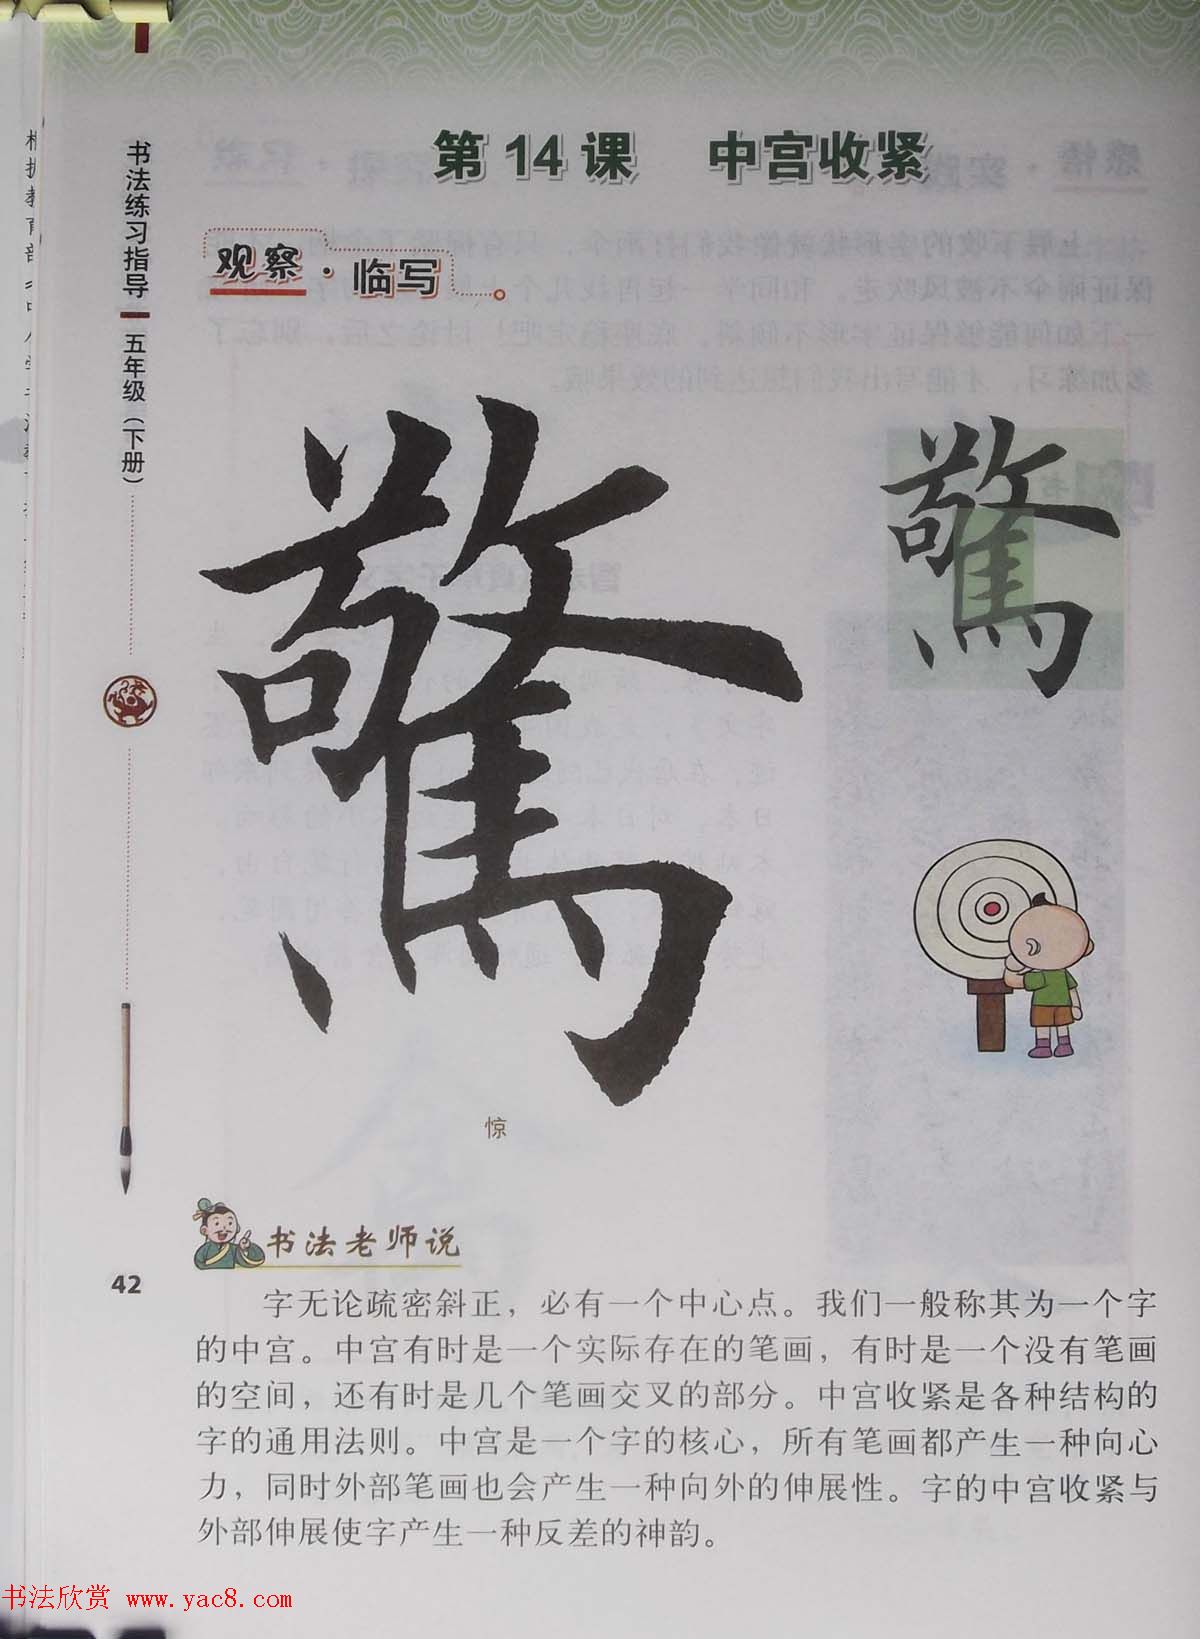 第14课 中宫收紧
书法练习指导 五年级（下册）
观察·临写
驚
驚
惊
书法老师说
42
字无论疏密斜正，必有一个中心点。我们一般称其为一个字
的中宫。中宫有时是一个实际存在的笔画，有时是一个没有笔画
的空间，还有时是几个笔画交叉的部分。中宫收紧是各种结构的
字的通用法则。中宫是一个字的核心，所有笔画都产生一种向心
力，同时外部笔画也会产生一种向外的伸展性。字的中宫收紧与
外部伸展使字产生一种反差的神韵。
书法欣赏 www.yac8.com